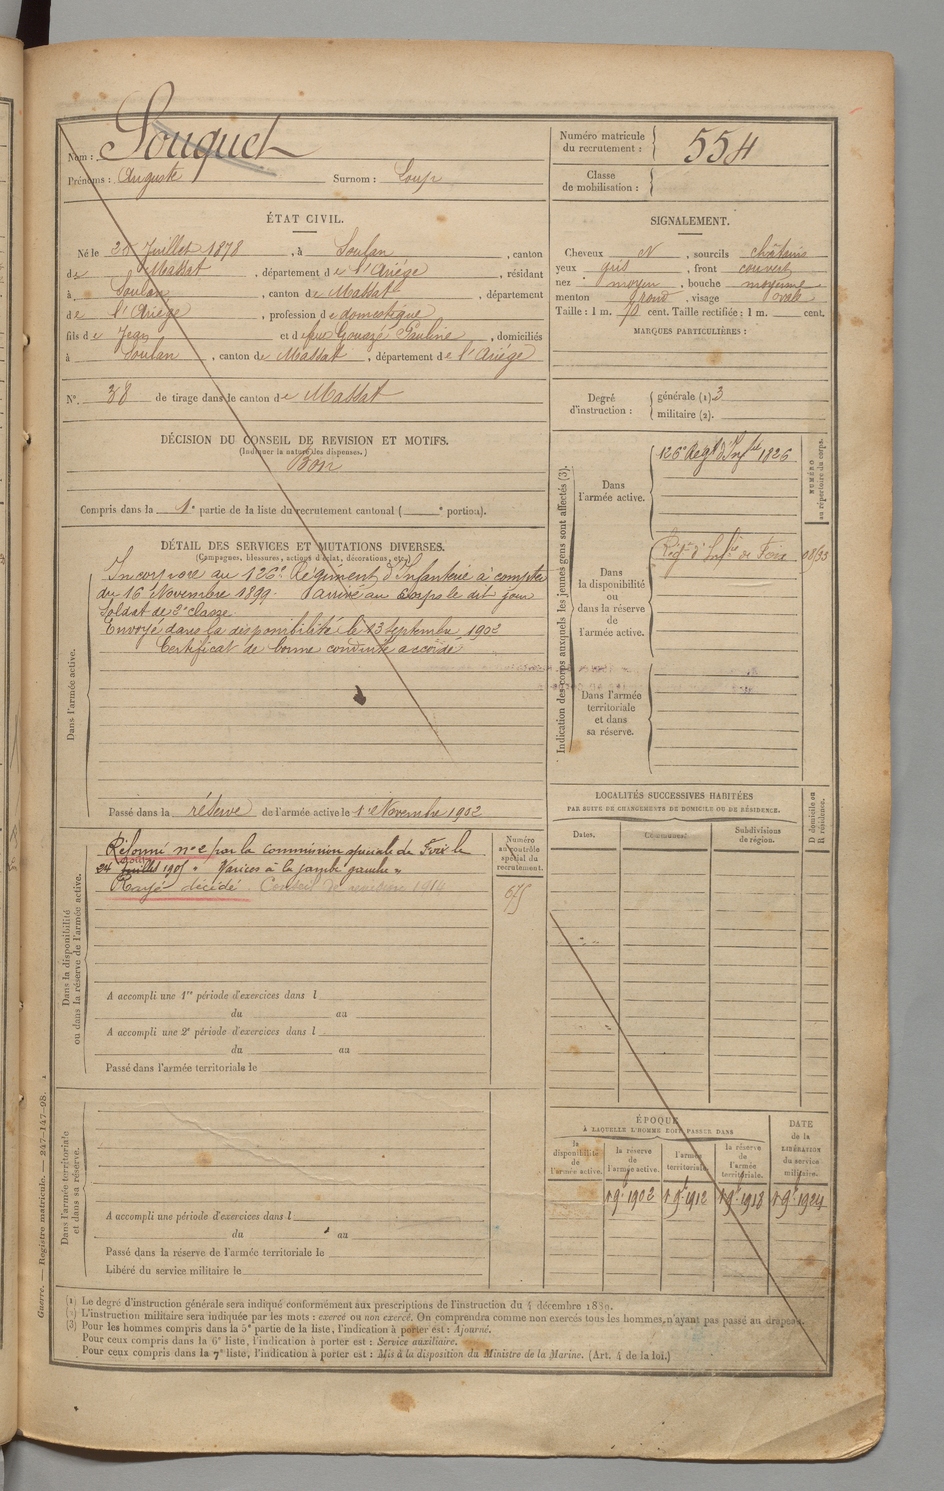 Nom : Souquet
Prénoms : Auguste Surnom : Loup
Numéro matricule du recrutement : 554
Classe de mobilisation :
ÉTAT CIVIL.
Né le Juillet 1878, à Soulan, canton
de Massat, département de l'Ariège, résidant
à Soulan, canton de Massat, département
de l'Ariège, profession de domestique
fils de Jean et de feue Gouazé Pauline, domiciliés
à Soulan, canton de Massat, département de l'Ariège
N°. 38 de tirage dans le canton de Massat
SIGNALEMENT.
Cheveux N, sourcils châtains
yeux gris, front couvert
nez moyen, bouche moyenne
menton rond, visage ovale
Taille : 1 m. 70 cent. Taille rectifiée : 1 m. cent.
MARQUES PARTICULIÈRES :
Degré d'instruction : générale (1) 3
militaire (2).
DÉCISION DU CONSEIL DE REVISION ET MOTIFS.
(Indiquer la nature des dispenses.)
Bon
Compris dans la 1e partie de la liste du recrutement cantonal ( e portion).
DÉTAIL DES SERVICES ET MUTATIONS DIVERSES.
(Campagnes, blessures, actions d'éclat, décorations, etc.)
Dans l'armée active.
Incorporé au 126e Régiment d'Infanterie à compter
du 16 Novembre 1899. Arrivé au Corps le dit jour
Soldat de 2e classe.
Envoyé dans la disponibilité le 23 Septembre 1902
Certificat de bonne conduite accordé
Passé dans la réserve de l'armée active le 1er Novembre 1902
Indication des corps auxquels les jeunes gens sont affectés (3).
NUMÉRO au répertoire du corps.
Dans l'armée active.
126e Regt d'Inftie 1826
Dans la disponibilité ou dans la réserve de l'armée active.
Régt d'Inftie de Foix
Dans l'armée territoriale et dans sa réserve.
Dans la disponibilité ou dans la réserve de l'armée active.
Numéro au contrôle spécial du recrutement.
Réformé n° 2 par la commission spéciale de Foix le
24 Juillet 1905 " Varices à la jambe gauche "
Rayé décédé. Conseil de révision 1914
675
A accompli une 1re période d'exercices dans l
du au
A accompli une 2e période d'exercices dans l
du au
Passé dans l'armée territoriale le
LOCALITÉS SUCCESSIVES HABITÉES
PAR SUITE DE CHANGEMENTS DE DOMICILE OU DE RÉSIDENCE.
Dates. Communes. Subdivisions de région. D domicile ou R résidence.
Dans l'armée territoriale et dans sa réserve.
A accompli une période d'exercices dans l
du au
Passé dans la réserve de l'armée territoriale le
Libéré du service militaire le
ÉPOQUE
À LAQUELLE L'HOMME DOIT PASSER DANS
la disponibilité de l'armée active.
la réserve de l'armée active.
l'armée territoriale.
la réserve de l'armée territoriale.
DATE de la LIBÉRATION du service militaire.
1 9e 1902 1 9e 1912 1 9e 1918 1 9e 1924
(1) Le degré d'instruction générale sera indiqué conformément aux prescriptions de l'instruction du 4 décembre 1889.
(2) L'instruction militaire sera indiquée par les mots : exercé ou non exercé. On comprendra comme non exercés tous les hommes n'ayant pas passé au drapeau.
(3) Pour les hommes compris dans la 5e partie de la liste, l'indication à porter est : Ajourné.
Pour ceux compris dans la 6e liste, l'indication à porter est : Service auxiliaire.
Pour ceux compris dans la 7e liste, l'indication à porter est : Mis à la disposition du Ministre de la Marine. (Art. 4 de la loi.)
Guerre. — Registre matricule. — 247-147-98.